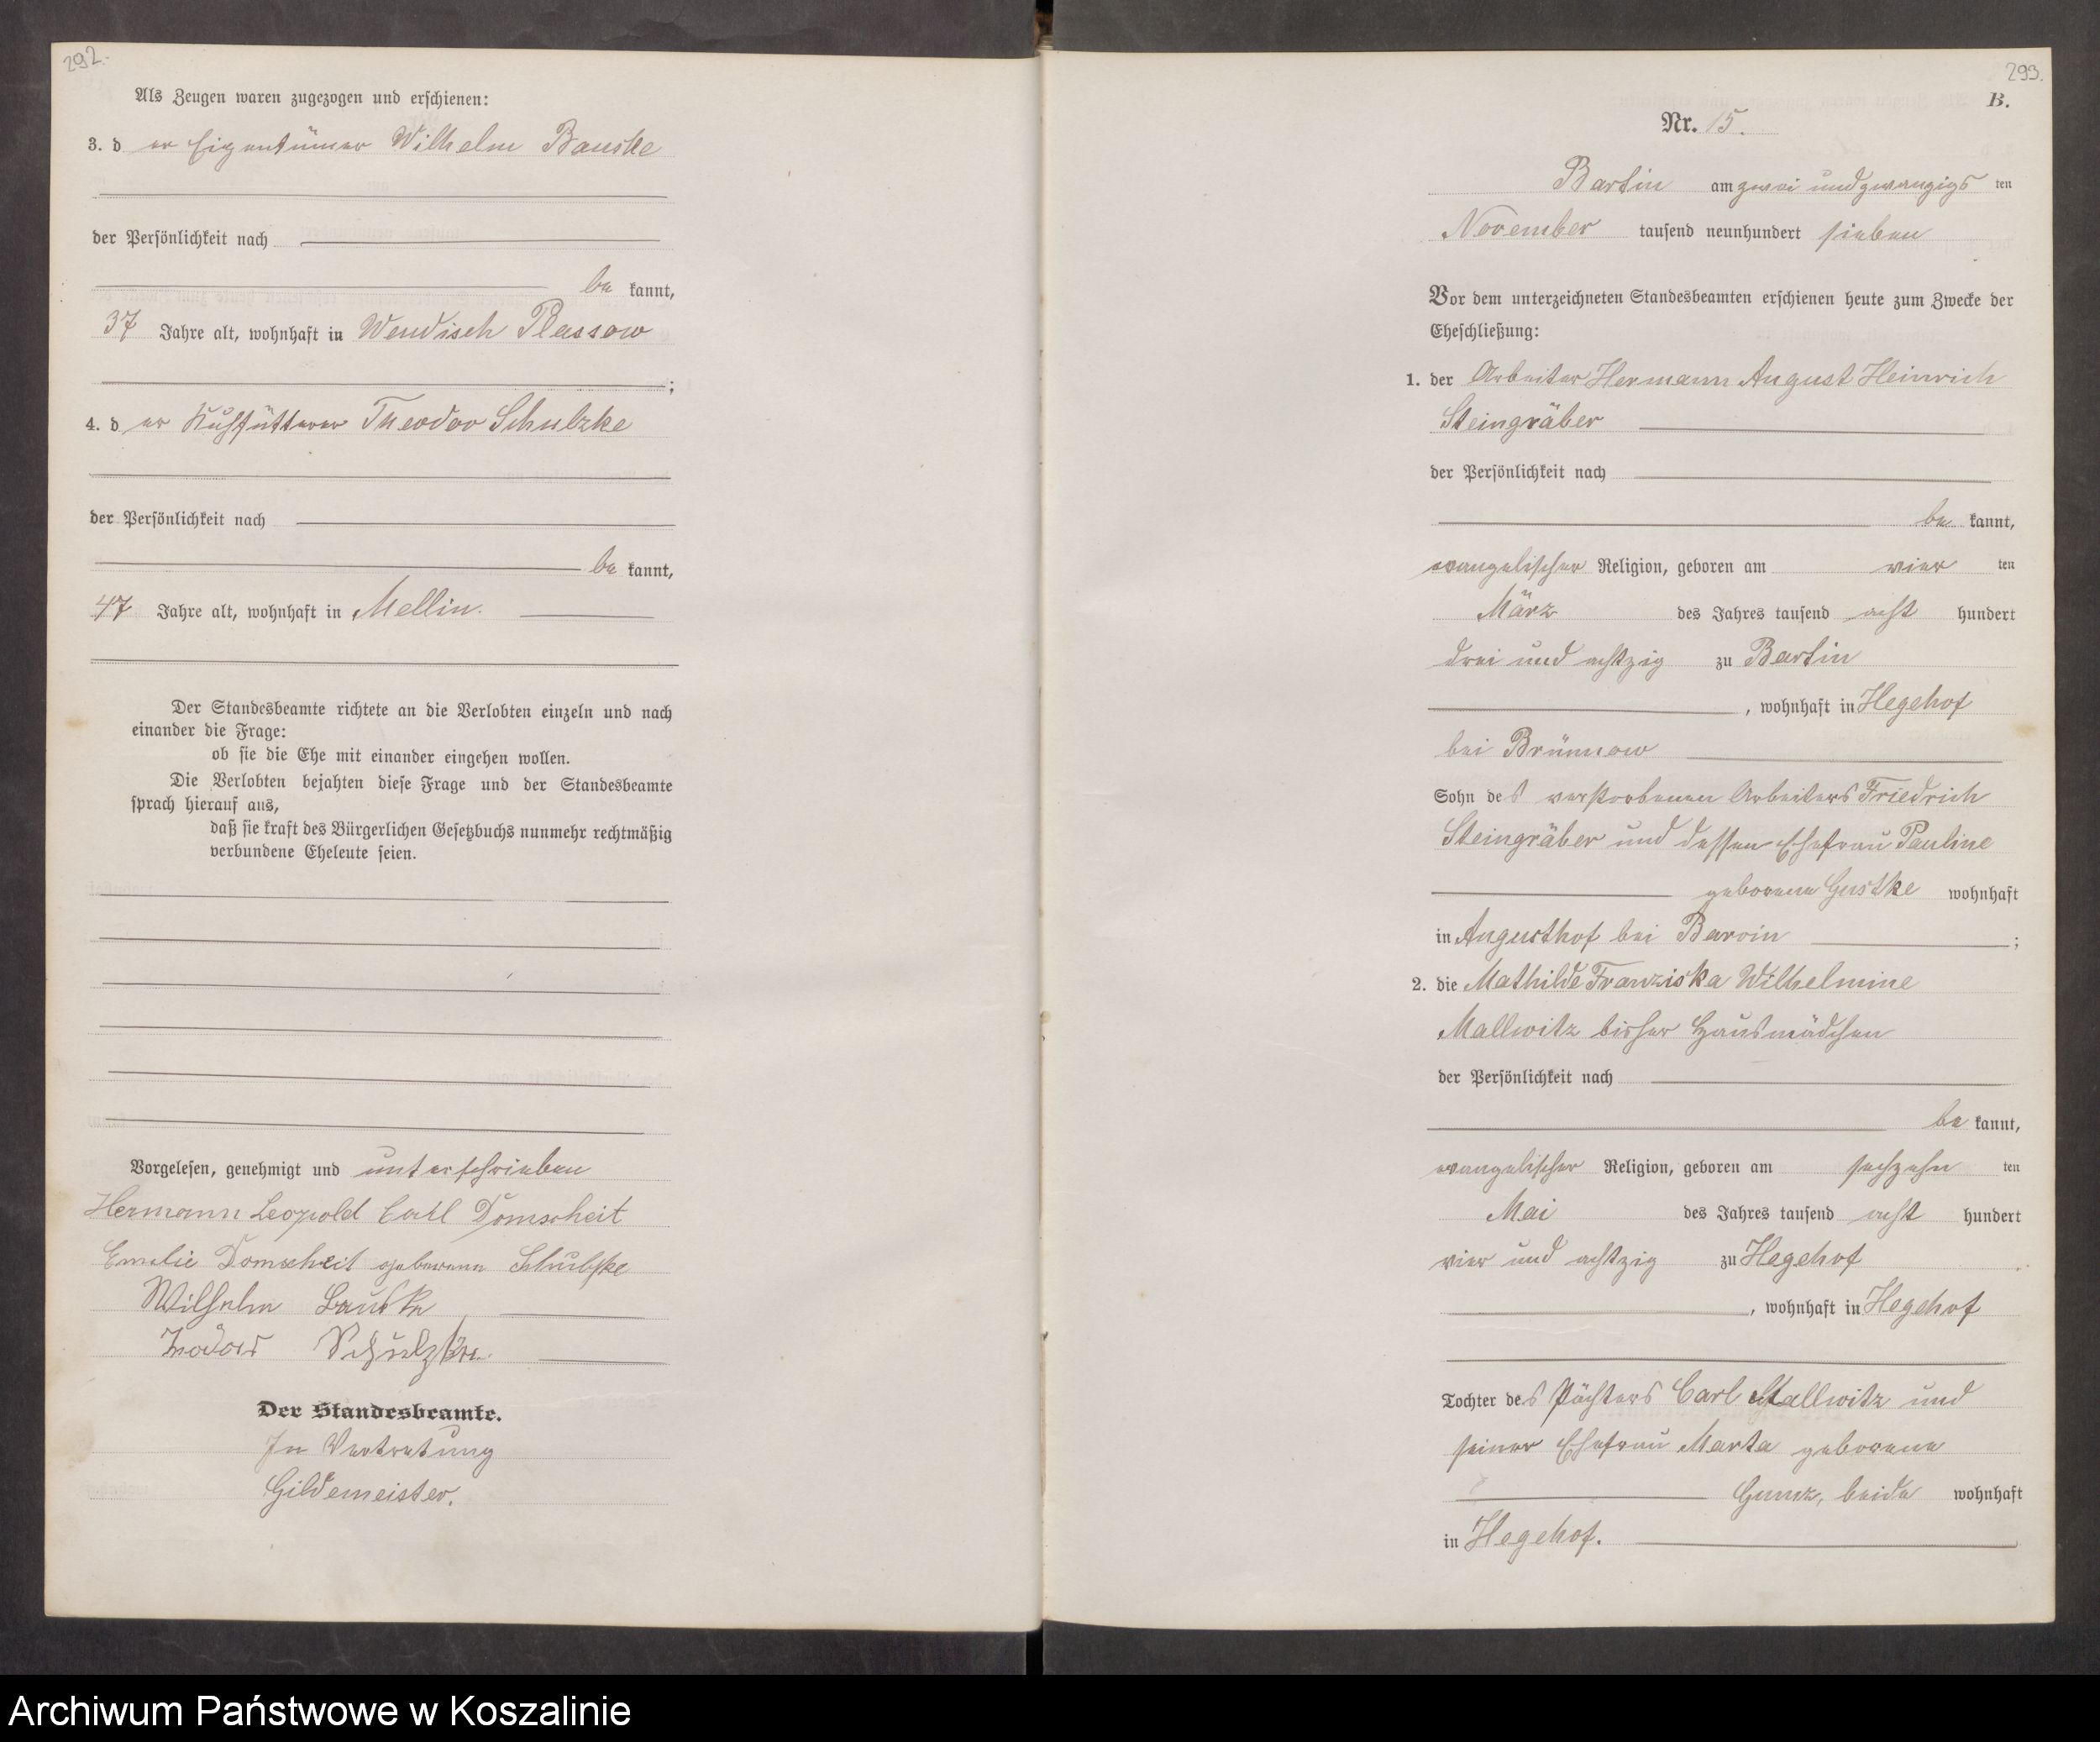 292.
Als Zeugen waren zugezogen und erschienen:
3. d er Eigentümer Wilhelm Bauske
der Persönlichkeit nach
be kannt,
37 Jahre alt, wohnhaft in Wendisch Plassow
;
4. d er Kuhfütterer Theodor Schulzke
der Persönlichkeit nach
be kannt,
47 Jahre alt, wohnhaft in Mellin.
Der Standesbeamte richtete an die Verlobten einzeln und nach
einander die Frage:
ob sie die Ehe mit einander eingehen wollen.
Die Verlobten bejahten diese Frage und der Standesbeamte
sprach hierauf aus,
daß sie kraft des Bürgerlichen Gesetzbuchs nunmehr rechtmäßig
verbundene Eheleute seien.
Vorgelesen, genehmigt und unterschrieben
Hermann Leopold Carl Domscheit
Emelie Domscheit geborene
Wilhelm Bauske
Schulzke
Der Standesbeamte.
In Vertretung
Gildemeister.
293.
B.
Nr. 15.
Bartin am zwei und zwanzigs ten
November tausend neunhundert sieben
Vor dem unterzeichneten Standesbeamten erschienen heute zum Zwecke der
Eheschließung:
1. der Arbeiter Hermann August Heinrich
Steingräber
der Persönlichkeit nach
be kannt,
evangelischer Religion, geboren am vier ten
März des Jahres tausend acht hundert
drei und achtzig zu Bartin
, wohnhaft in Hegehof
bei Brünnow
Sohn des verstorbenen Arbeiters Friedrich
Steingräber und dessen Ehefrau Pauline
geborene Gustke wohnhaft
in Augusthof bei Barvin ;
2. die Mathilde Franziska Wilhelmine
Mallwitz bisher Hausmädchen
der Persönlichkeit nach
be kannt,
evangelischer Religion, geboren am sechzehn ten
Mai des Jahres tausend acht hundert
vier und achtzig zu Hegehof
, wohnhaft in Hegehof
Tochter des Pächters Carl Mallwitz und
seiner Ehefrau Marta geborene
beide wohnhaft
in Hegehof.
Archiwum Państwowe w Koszalinie